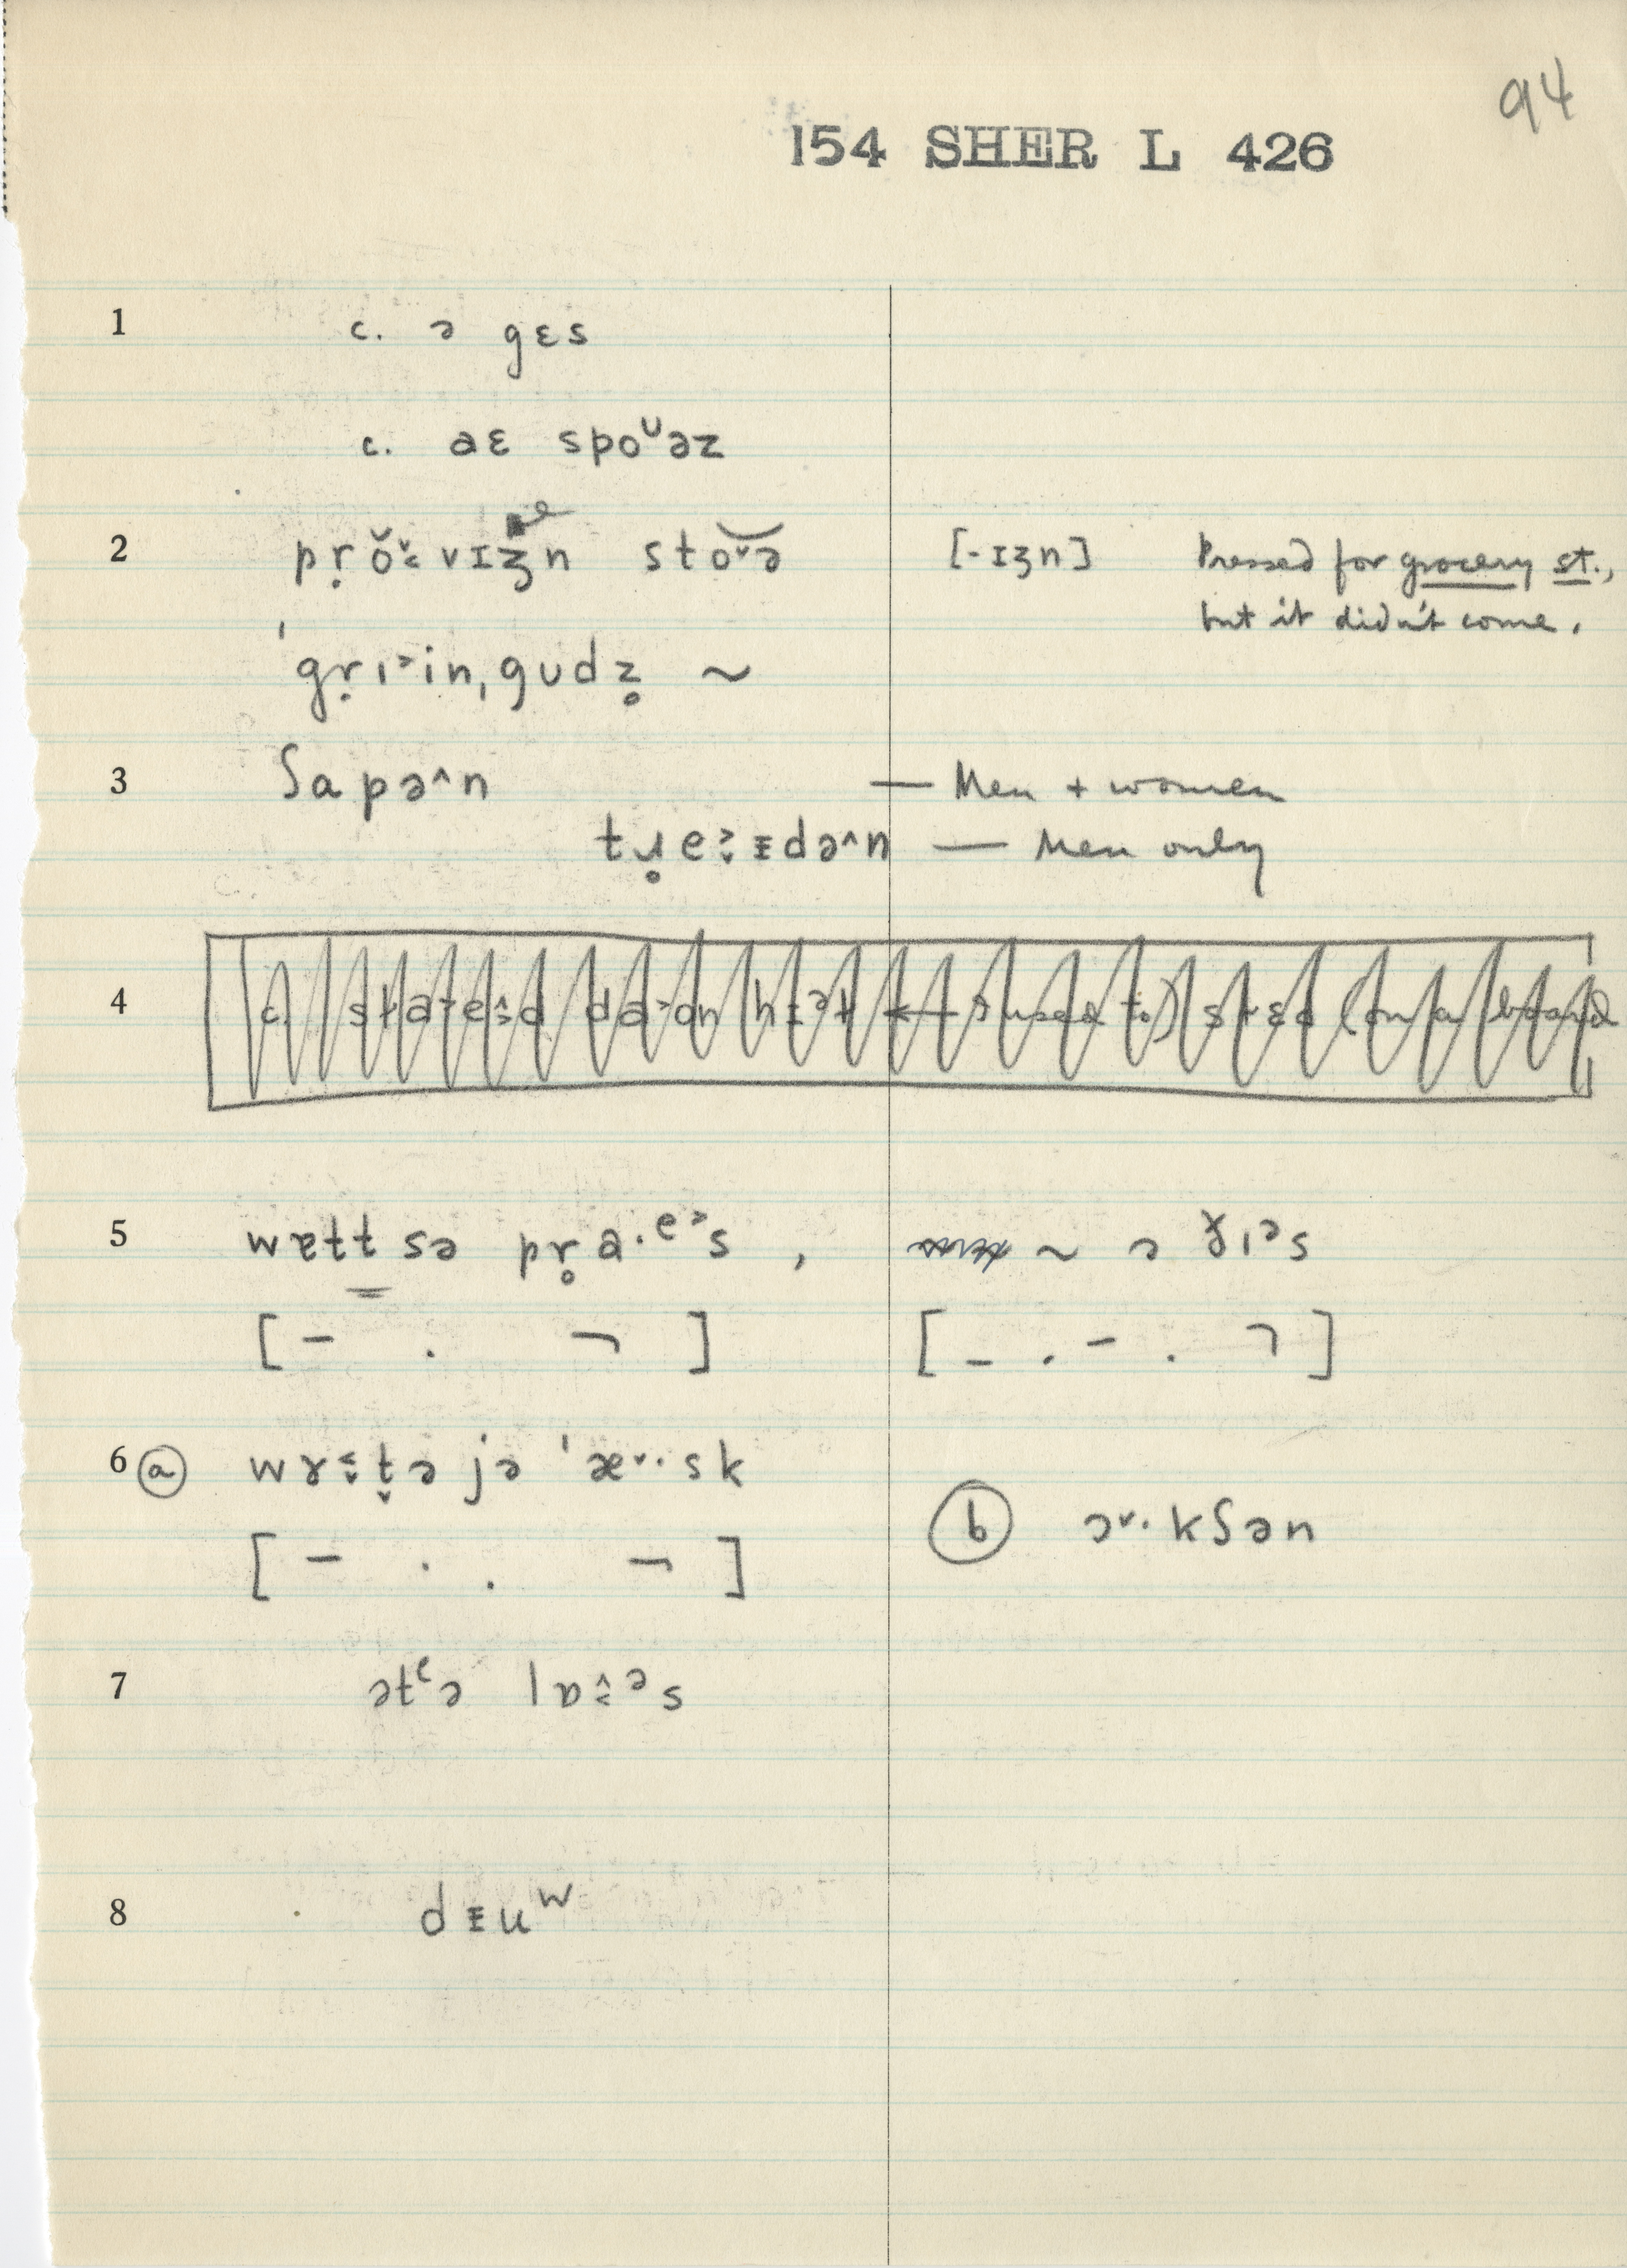 94
154 SHER L 426
1 c. ə gɛs
c. aɛ spoᵁəz
2 pr̥ŏ˅˂vɪʒᵊn stoᵛə [-ɪʒn] Pressed for grocery st.,
but it didn't come.
ˈgr̥ɪ˃in,gudz̥ ~
3 ʃapə^n — Men + women
tɹ̥e˃ɪdə^n — Men only
4 c.
5 wɐtt sə pr̥a·ᵉ˃s , ~ ə ɣɪəs
[ – . ¬ ] [ – . – . ¬ ]
6 ⓐ wɤt̬ə jə ˈæ˅·sk ⓑ ɔ˅·kʃən
[ – . . ¬ ]
7 ətᵊɔ lɒ^ᵊs
8 dɪuʷ